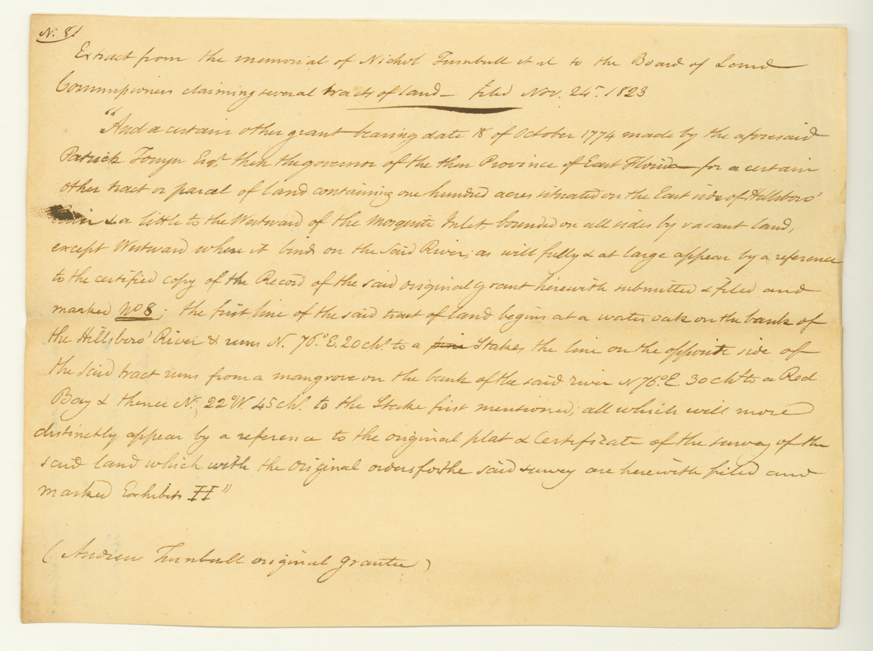 N. 81
Extract from the memorial of Nichol Turnbull et al to the Board of Land
Commissioners claiming several tracts of land — filed Nov. 24th. 1823
"And a certain other grant bearing date 18 of October 1774 made by the aforesaid
Patrick Tonyn Esqr then the governor of the then Province of East Florida for a certain
other tract or parcel of land containing one hundred acres situated on the East side of Hillsboro'
River & a little to the Westward of the Mosquito Inlet bounded on all sides by vacant land,
except Westward where it binds on the said River; as will fully & at large appear by a reference
to the certified copy of the Record of the said original grant herewith submitted & filed and
marked No 8; the first line of the said tract of land begins at a water oak on the bank of
the Hillsboro' River & runs N. 76.° E. 20 chs. to a pine Stake, the line on the opposite side of
the said tract runs from a mangrove on the bank of the said river N 76° E. 30 chs to a Red
Bay & thence N. 22° W. 45 chs. to the Stake first mentioned; all which will more
distinctly appear by a reference to the original plat & Certificate of the survey of the
said land which with the original orders for the said survey are herewith filed and
marked Exhibits II"
(Andrew Turnbull original grantee)